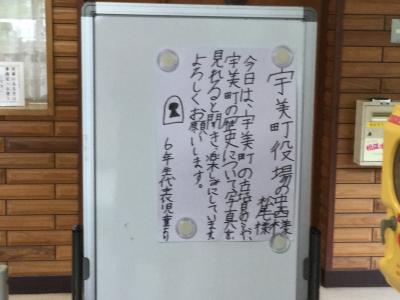 宇美町役場の中西様
松尾様
今日は、宇美町の
宇美町の歴史について写真を
見れると聞き、楽しみにしています。
よろしくお願いします。
6年生代表児童より